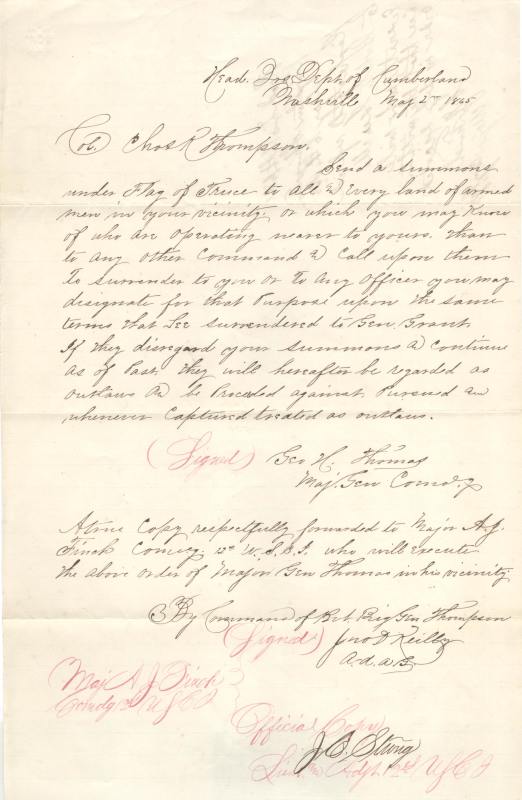 Head. Qrs Dept. of Cumberland
Nashville May 2nd 1865
Col. Chas R Thompson.
Send a summons
under Flag of Truce to all & every band of armed
men in your vicinity or which you may know
of who are operating nearer to yours than
to any other Command & Call upon them
To surrender to you or To Any Officer you may
designate for that Purpose upon the same
terms that Lee surrendered to Gen. Grant
If they disregard your summons & continue
as of last they will hereafter be regarded as
outlaws & be Proceded against Pursued and
whenever Captured treated as outlaws.
(Signed) Geo H. Thomas
Maj. Gen Comd.g
A true Copy respectfully forwarded to Major A.J.
Finch Comdg 12th U.S.C.I. who will execute
the above order of Major Gen Thomas in his vicinity
By Command of Bvt. Brig Gen Thompson
(Signed) Jno D Reilly
A.A.A.G
Maj A J Finch
Comdg 12 U S C I
Official Copy
J. E. Strong
Lieut & Adjt. 12th U S C I